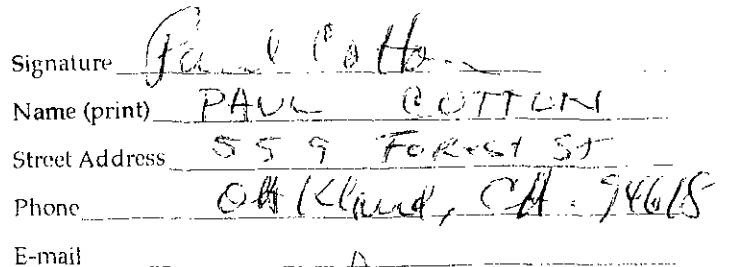 Signature Paul Cotton
Name (print) PAUL COTTON
Street Address 559 FOREST ST
Phone Oakland, CA. 94618
E-mail